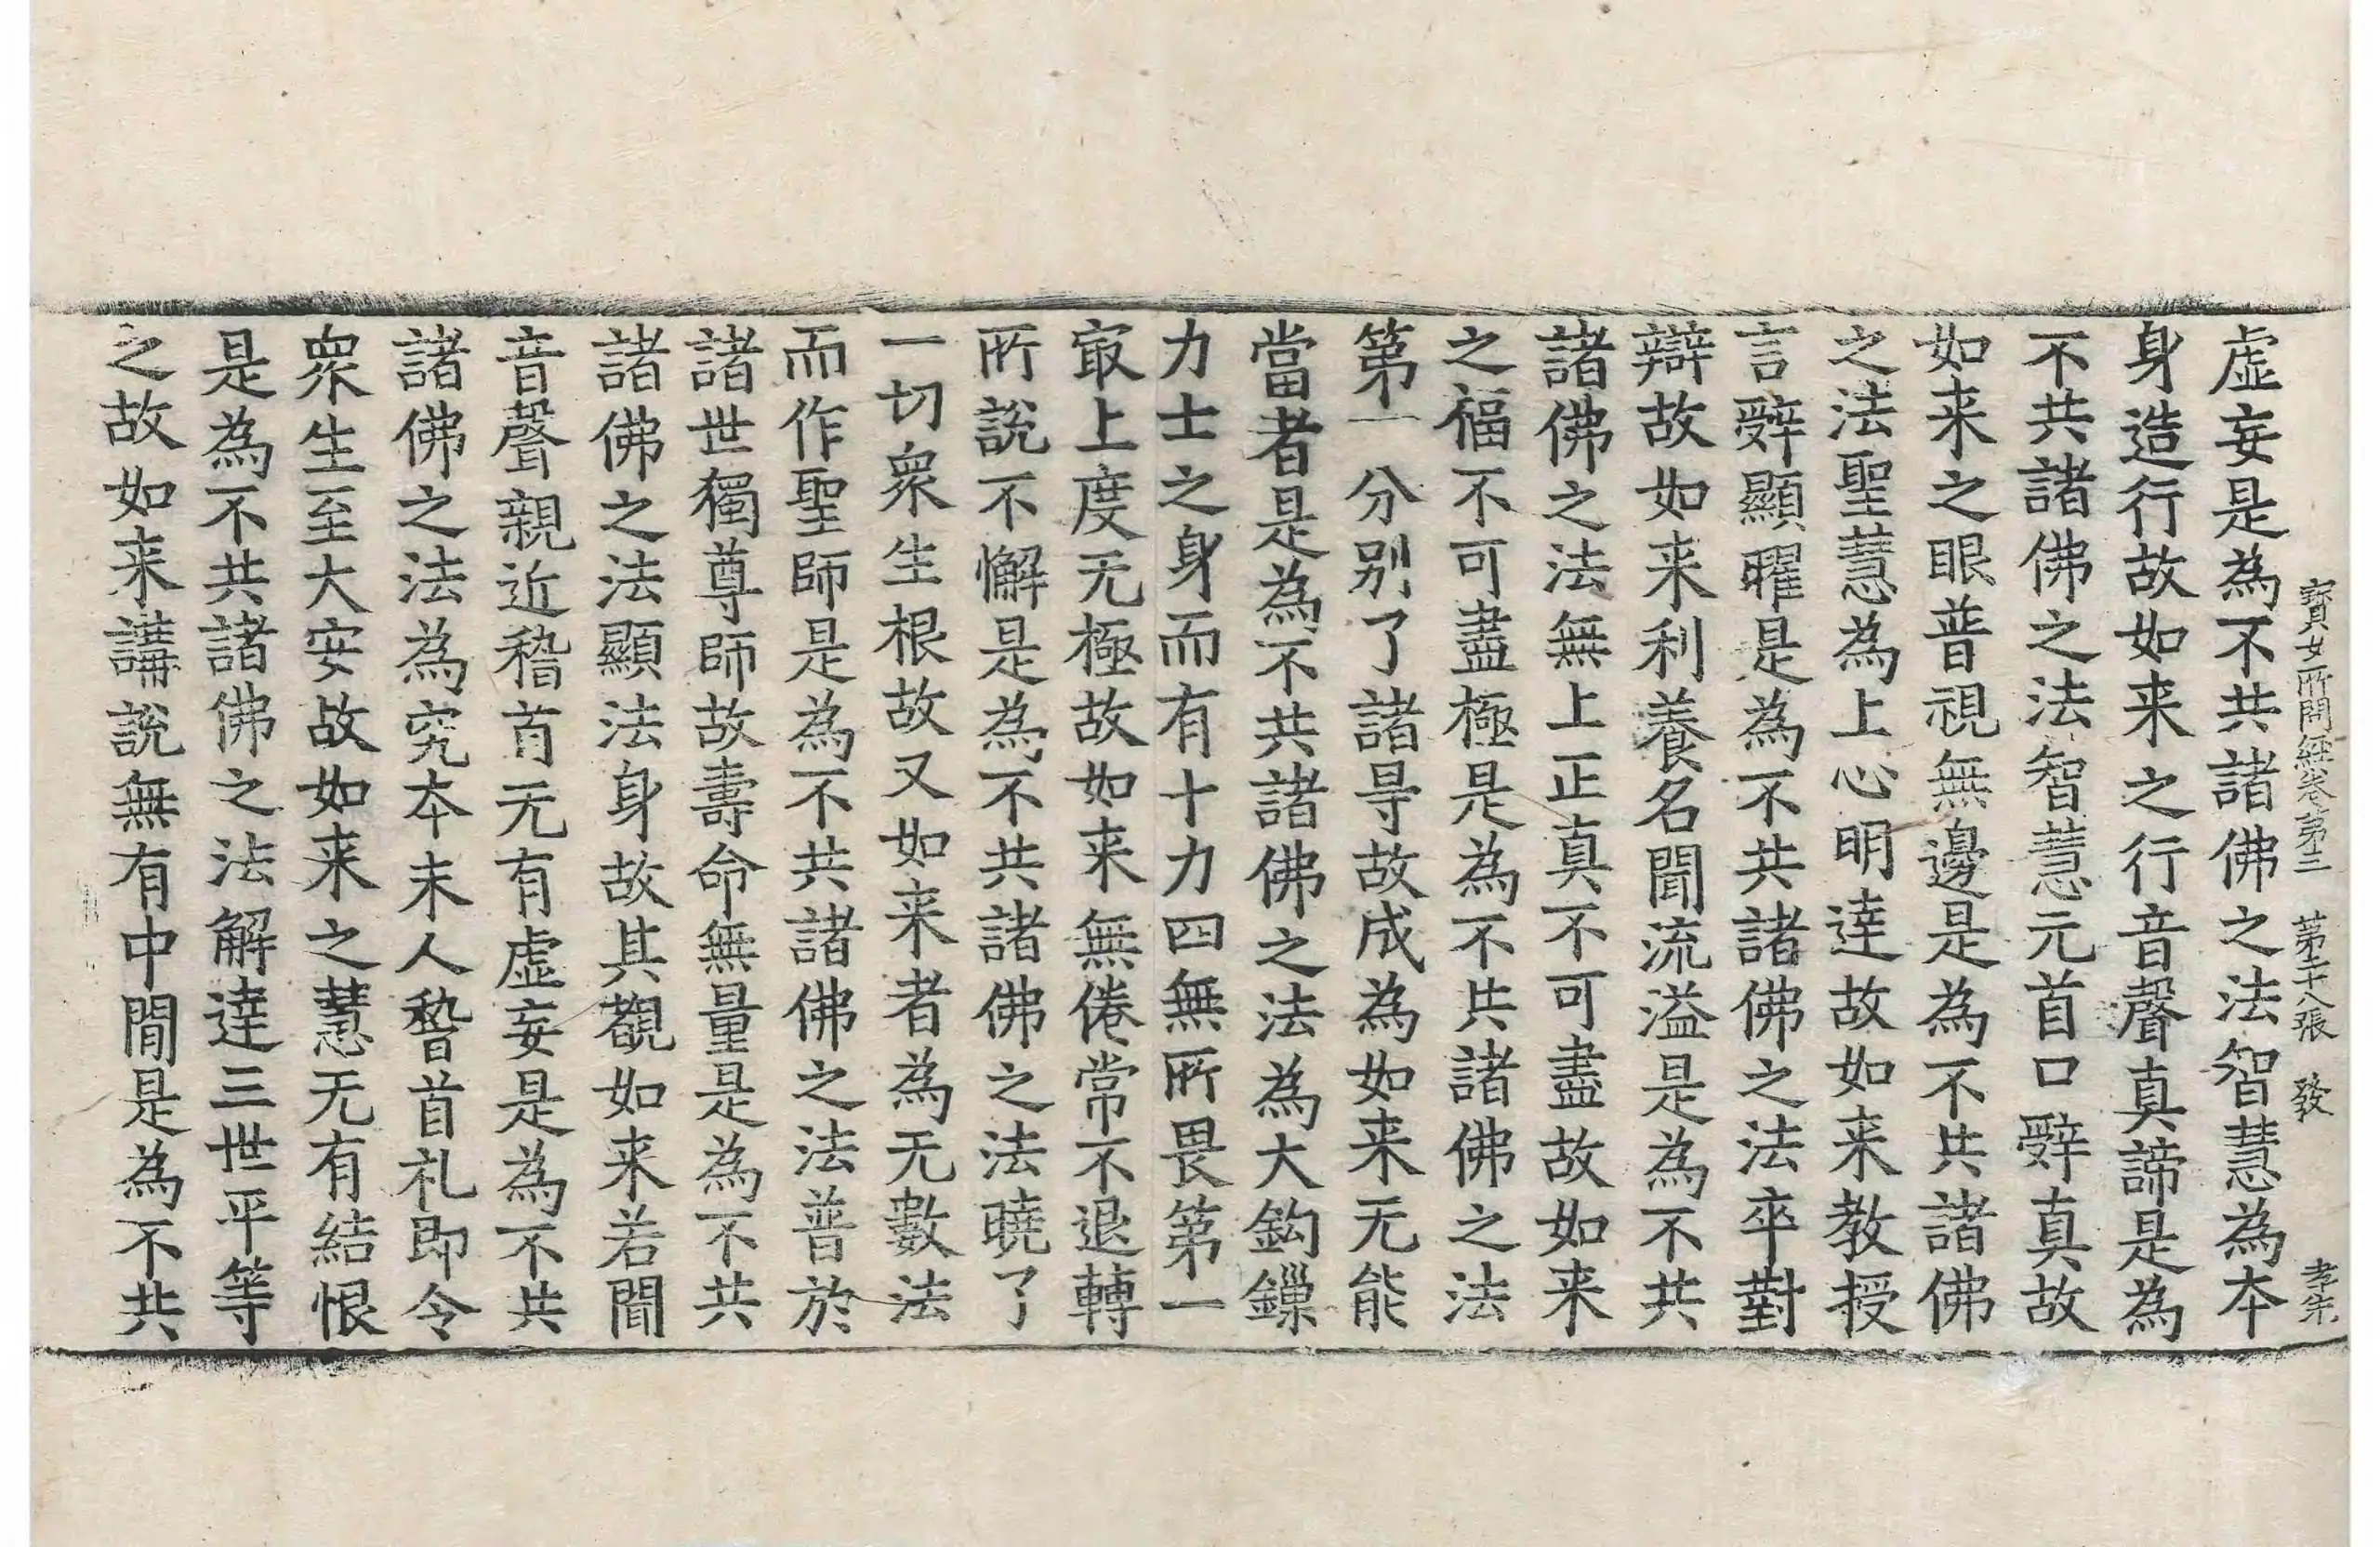 寳女所問經卷第三　第二十八張　發　孝朱
虛妄是為不共諸佛之法智慧為本
身造行故如来之行音聲真諦是為
不共諸佛之法智慧元首口辤真故
如来之眼普視無邊是為不共諸佛
之法聖慧為上心明達故如来教授
言辤顯曜是為不共諸佛之法卒對
辯故如来利養名聞流溢是為不共
諸佛之法無上正真不可盡故如来
之福不可盡極是為不共諸佛之法
第一分别了諸㝵故成為如来无能
當者是為不共諸佛之法為大鈎鏁
力士之身而有十力四無所畏第一
㝡上度无極故如来無倦常不退轉
所說不懈是為不共諸佛之法曉了
一切衆生根故又如来者為无數法
而作聖師是為不共諸佛之法普於
諸世獨尊師故壽命無量是為不共
諸佛之法顯法身故其觀如来若聞
音聲親近稽首无有虛妄是為不共
諸佛之法為究本末人稽首礼即令
衆生至大安故如来之慧无有結恨
是為不共諸佛之法解達三世平等
之故如来講說無有中閒是為不共